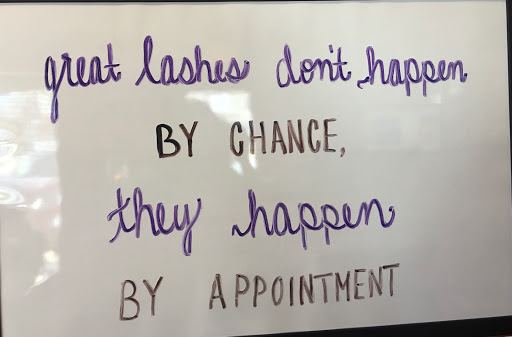 great lashes don't happen
BY CHANCE,
they happen
BY APPOINTMENT